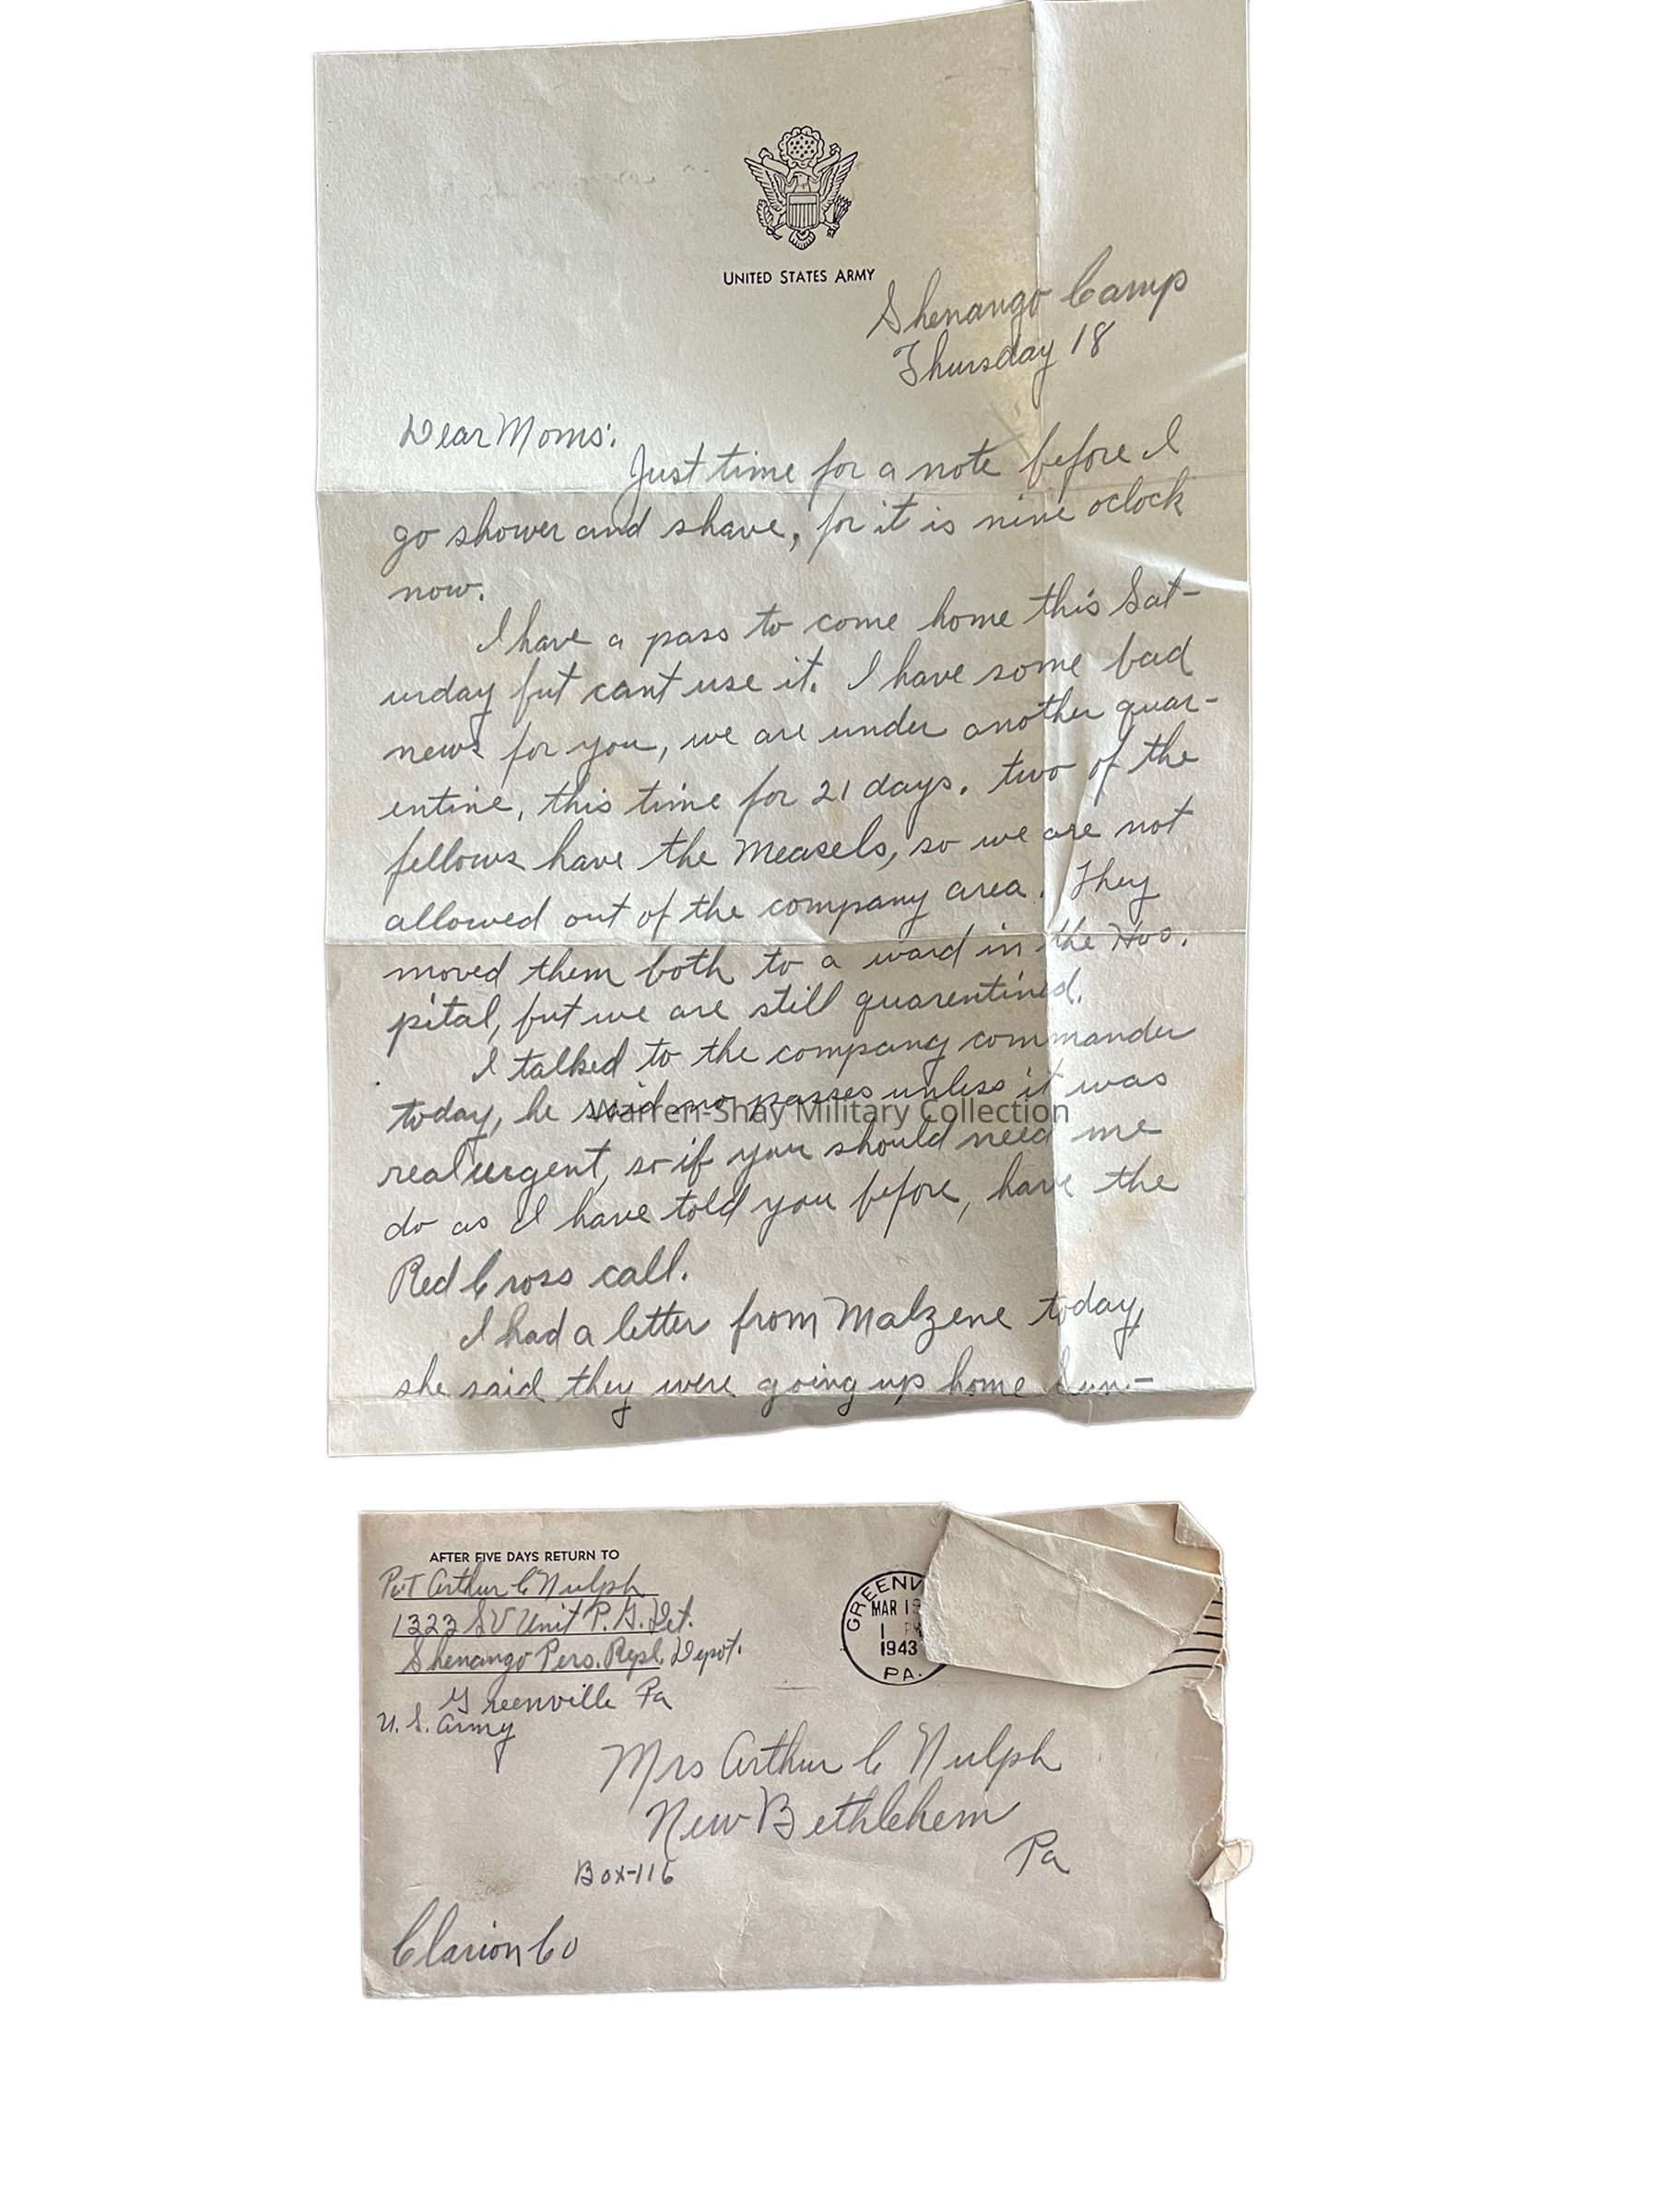 UNITED STATES ARMY
Shenango Camp
Thursday 18
Dear Moms:
Just time for a note before I
go shower and shave, for it is nine oclock
now.
I have a pass to come home this Sat-
urday but cant use it. I have some bad
news for you, we are under another quar-
entine, this time for 21 days. two of the
fellows have the Measels, so we are not
allowed out of the company area. They
moved them both to a ward in the Hos.
pital, but we are still quarentined.
I talked to the company commander
today, he said no passes unless it was
real urgent, so if you should need me
do as I have told you before, have the
Red Cross call.
I had a letter from Malzene today,
she said they were going up home Sun.-
Warren-Shay Military Collection
AFTER FIVE DAYS RETURN TO
Pvt Arthur C Nulph
1323 SV Unit P. G. Det.
Shenango Pers. Repl. Depot.
Greenville Pa
U. S. Army
GREENV
MAR 19
1 PM
1943
PA.
Mrs Arthur C Nulph
New Bethlehem
Pa
Box-116
Clarion Co